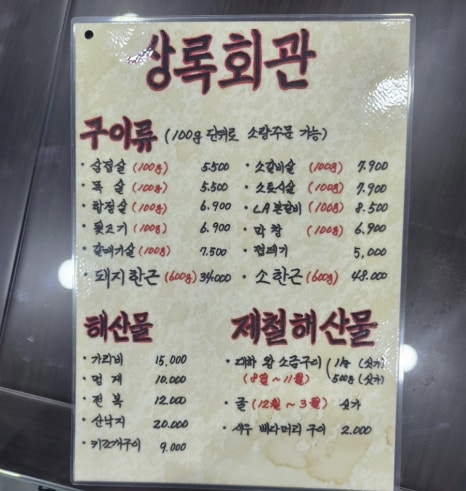 상록회관
구이류 (100g 단위로 소량주문 가능)
· 삼겹살 (100g) 5.500
· 목 살 (100g) 5.500
· 항정살 (100g) 6.900
· 뒷고기 (100g) 6.900
· 갈매기살 (100g) 7.500
· 돼지한근 (600g) 34.000
· 소갈비살 (100g) 7.900
· 소토시살 (100g) 7.900
· LA본갈비 (100g) 8.500
· 막 창 (100g) 6.900
· 껍데기 5,000
· 소한근 (600g) 48.000
해산물
· 가리비 15,000
· 멍 게 10.000
· 전 복 12.000
· 산낙지 20.000
· 키조개구이 9.000
제철해산물
· 대하 왕 소금구이 1kg (싯가)
(8월~11월) 500g (싯가)
· 굴 (12월~3월) 싯가
· 새우 빼다머리 구이 2.000